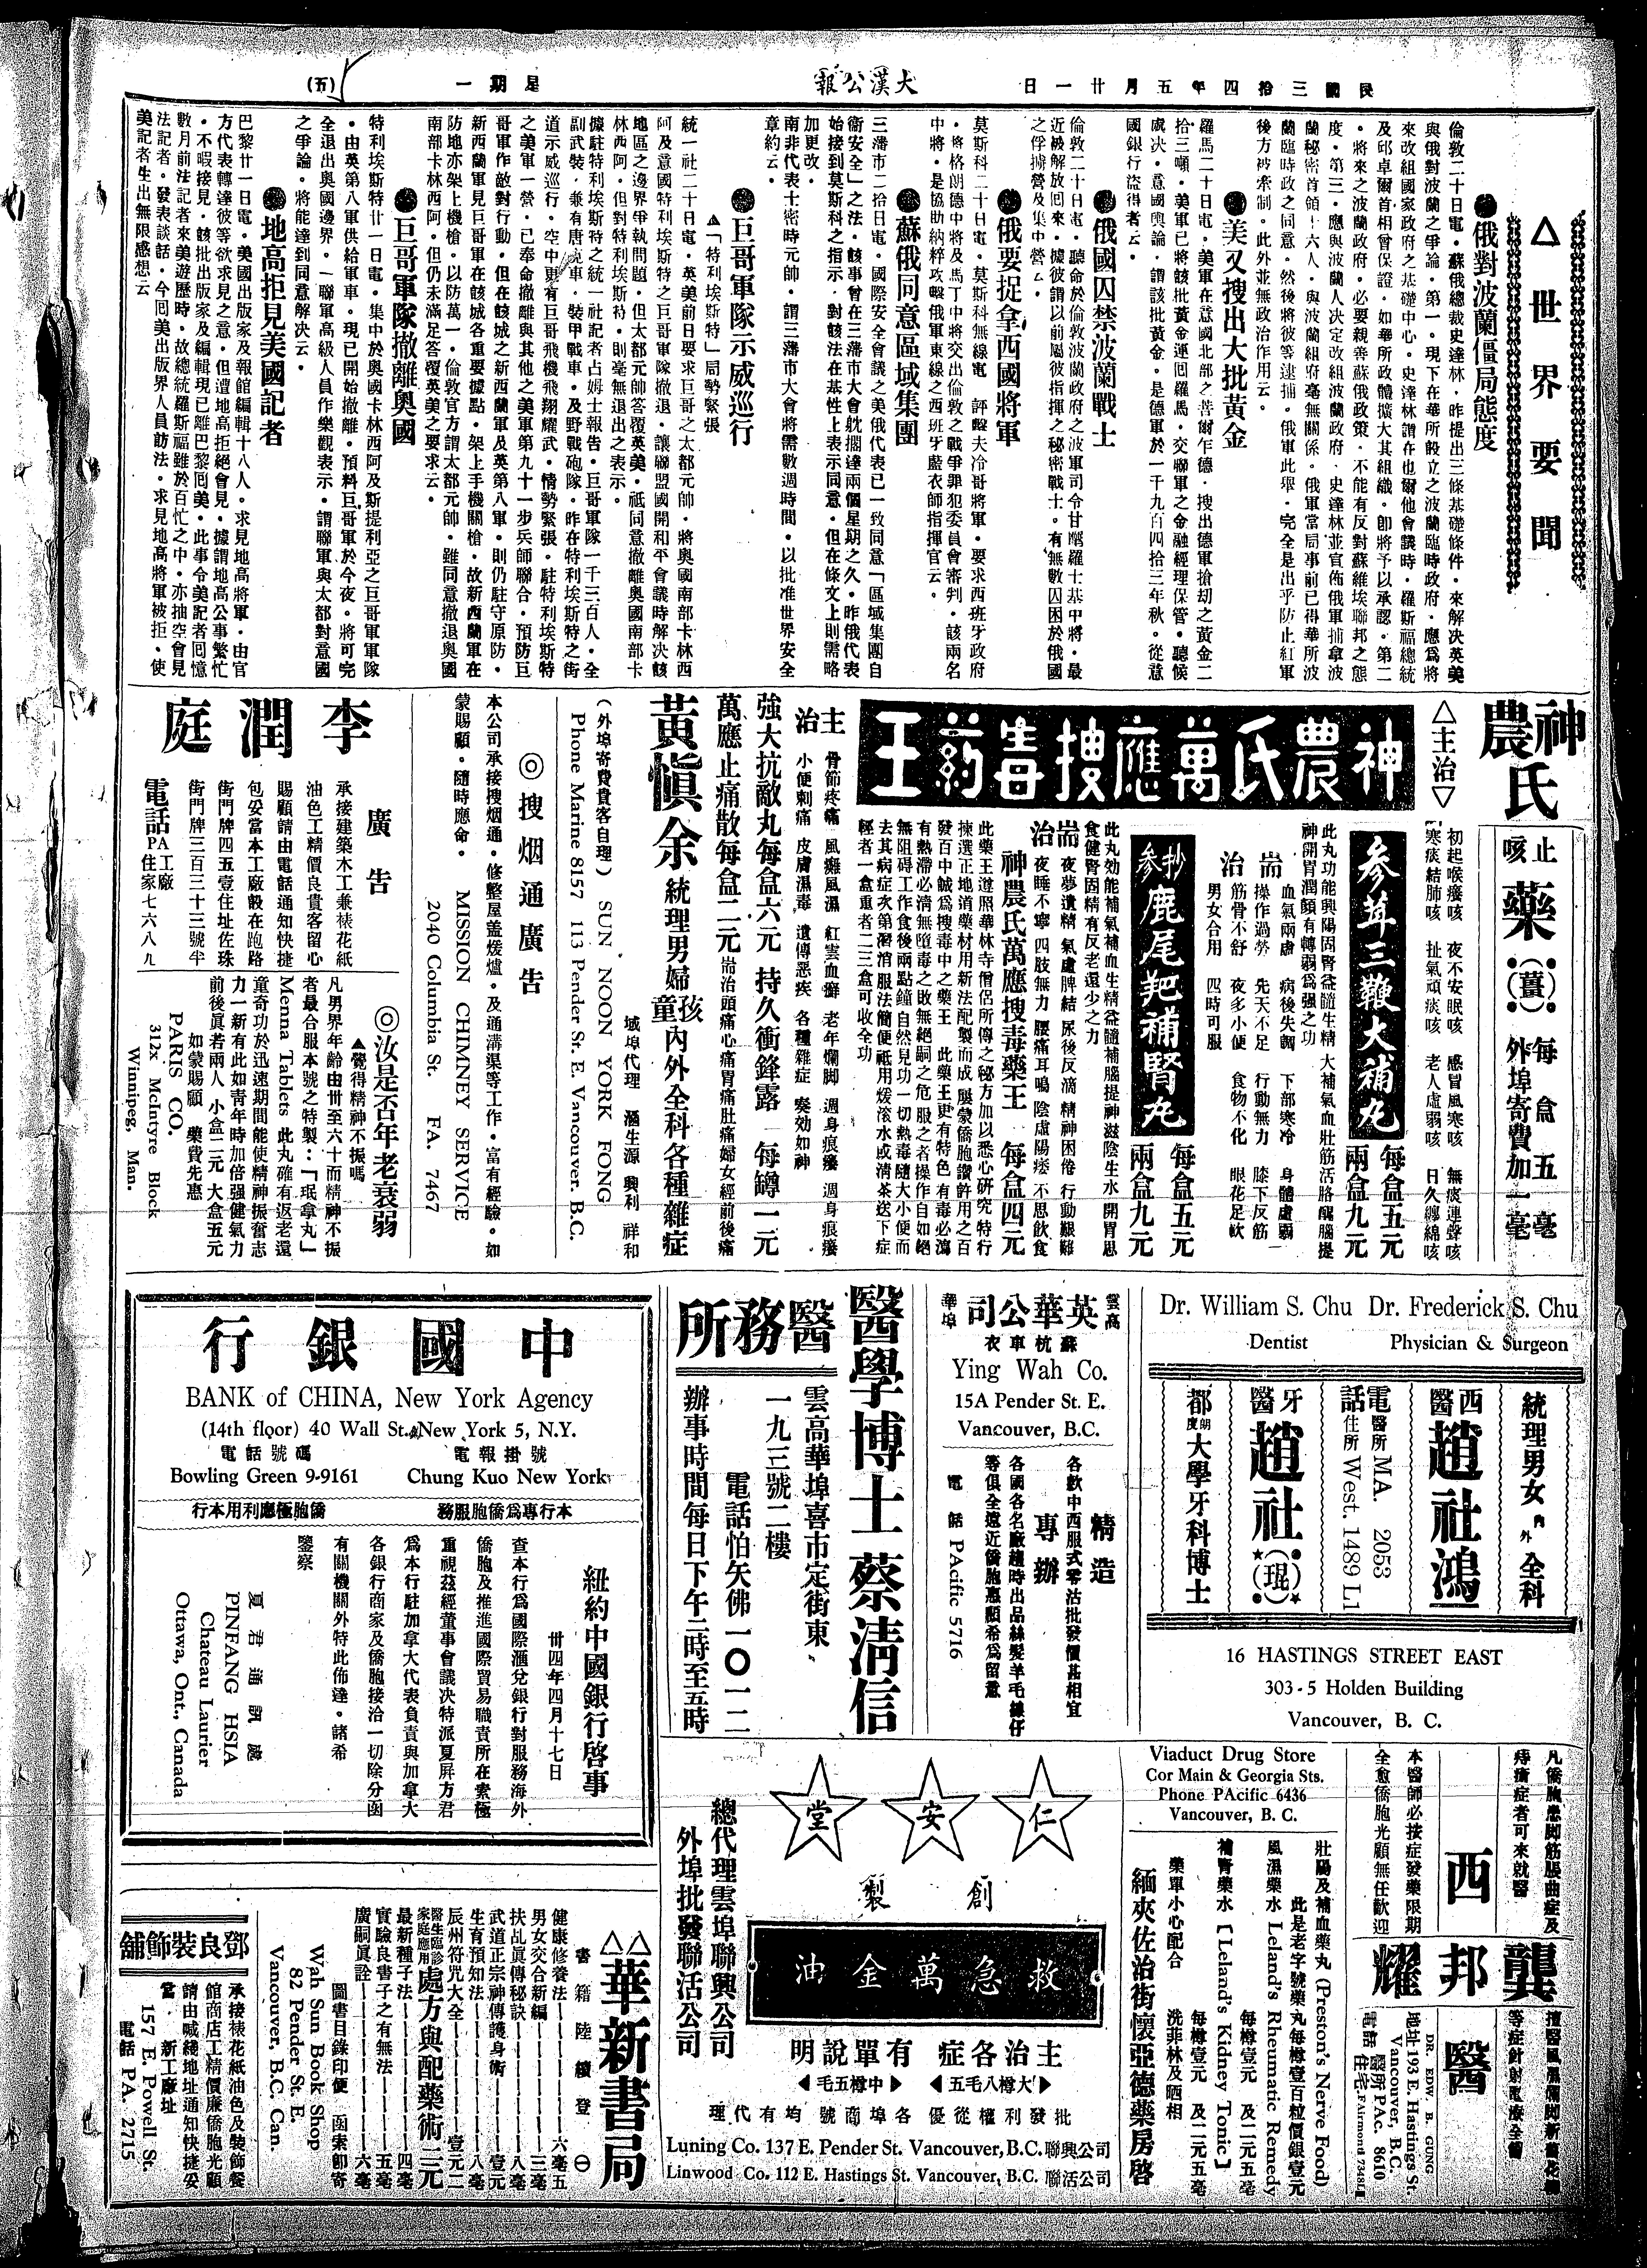 民國三拾四年五月廿一日
大漢公報
星期一
(五)
△世界要聞
●俄對波蘭僵局態度
倫敦二十日電・蘇俄總裁史達林・昨提出三條基礎條件・來解決英美
與俄對波蘭之爭論・第一・現下在華所設立之波蘭臨時政府・應爲將
來改組國家政府之基礎中心・史達林謂在也爾他會議時・羅斯福總統
及邱卓爾首相曾保證・如華所政體擴大其組織・卽將予以承認・第二
・將來之波蘭政府・必要親善蘇俄政策・不能有反對蘇維埃聯邦之態
度・第三・應與波蘭人決定改組波蘭政府・史達林並宣佈俄軍捕拿波
蘭秘密首領十六人・與波蘭組府毫無關係・俄軍當局事前已得華所波
蘭臨時政之同意・然後將彼等逮捕・俄軍此舉・完全是出乎防止紅軍
後方被牽制・此外並無政治作用云・
●美又搜出大批黃金
羅馬二十日電・美軍在意國北部之善爾乍德・搜出德軍搶刧之黃金二
拾三噸・美軍已將該批黃金運囘羅馬・交聯軍之金融經理保管・聽候
處决・意國輿論・謂該批黃金・是德軍於一千九百四拾三年秋・從意
國銀行盜得者云・
●俄國囚禁波蘭戰士
倫敦二十日電・聽命於倫敦波蘭政府之波軍司令甘醴羅士基中將・最
近被解放囘來・據彼謂以前屬彼指揮之秘密戰士・有無數囚困於俄國
之俘擄營及集中營云・
●俄要捉拿西國將軍
莫斯科二十日電・莫斯科無線電 評擊夫冷哥將軍・要求西班牙政府
・將格朗德中將及馬丁中將交出倫敦之戰爭罪犯委員會審判・該兩名
中將・是協助納粹攻擊俄軍東線之西班牙藍衣師指揮官云・
●蘇俄同意區域集團
三藩市二拾日電・國際安全會議之美俄代表已一致同意「區域集團自
衞安全」之法・該事曾在三藩市大會躭擱達兩個星期之久・昨俄代表
始接到莫斯科之指示・對該法在基性上表示同意・但在條文上則需略
加更改・
南非代表士密時元帥・謂三藩市大會將需數週時間・以批准世界安全
章約云・
●巨哥軍隊示威巡行
▲「特利埃斯特」局勢緊張
統一社二十日電・英美前日要求巨哥之太都元帥・將奧國南部卡林西
阿及意國特利埃斯特之巨哥軍隊撤退・讓聯盟國開和平會議時解決該
地區之邊界爭執問題・但太都元帥答覆英美・祗同意撤離奧國南部卡
林西阿・但對特利埃斯特・則毫無退出之表示・
據駐特利埃斯特之統一社記者占姆士報告・巨哥軍隊一千三百人・全
副武裝・兼有唐克車・裝甲戰車・及野戰砲隊・昨在特利埃斯特之街
道示威巡行・空中更有巨哥飛機飛翔耀武・情勢緊張・駐特利埃斯特
之美軍一營・已奉命撤離與其他之美軍第九十一步兵師聯合・預防巨
哥軍作敵對行動・但在該城之新西蘭軍及英第八軍・則仍駐守原防・
新西蘭軍見巨哥軍在該城各重要據點・架上手機關槍・故新西蘭軍在
防地亦架上機槍・以防萬一・倫敦官方謂太都元帥・雖同意撤退奧國
南部卡林西阿・但仍未滿足答覆英美之要求云・
●巨哥軍隊撤離奧國
特利埃斯特廿一日電・集中於奧國卡林西阿及斯提利亞之巨哥軍軍隊
・由英第八軍供給軍車・現已開始撤離・預料巨哥軍於今夜・將可完
全退出奧國邊界・一聯軍高級人員作樂觀表示・謂聯軍與太都對意國
之爭論・將能達到同意解決云・
●地高拒見美國記者
巴黎廿一日電・美國出版家及報館編輯十八人・求見地高將軍・由官
方代表轉達彼等欲求見之意・但遭地高拒絕會見・據謂地高公事繁忙
・不暇接見・該批出版家及編輯現已離巴黎囘美・此事令美記者囘憶
數月前法記者來美遊歷時・故總統羅斯福雖於百忙之中・亦抽空會見
法記者・發表談話・今囘美出版界人員訪法・求見地高將軍被拒・使
美記者生出無限感想云
神農氏
止咳藥(薑)每盒五毫
外埠寄費加一毫
△主治▽
初起喉癢咳 夜不安眠咳 感冒風寒咳 無痰連聲咳
寒痰結肺咳 扯氣頑痰咳 老人虛弱咳 日久纏綿咳
神農氏萬應搜毒葯王
參茸三鞭大補丸
每盒五元
兩盒九元
此丸功能興陽固腎益髓生精 大補氣血壯筋活胳醒腦提
神開胃潤顏有轉弱爲强之功
耑治
血氣兩虛 病後失調 下部寒冷 身體虛弱
操作過勞 先天不足 行動無力 膝下反筋
筋骨不舒 夜多小便 食物不化 眼花足軟
男女合用 四時可服
參抄鹿尾羓補腎丸
每盒五元
兩盒九元
此丸効能補氣補血生精益髓補腦提神滋陰生水 開胃思
食健腎固精有反老還少之力
耑治
夜夢遺精 氣虛脾結 尿後反滴 精神困倦 行動艱難
夜睡不寧 四肢無力 腰痛耳鳴 陰虛陽痿 不思飲食
神農氏萬應搜毒藥王 每盒四元
此藥王遵照華林寺僧侶所傳之秘方加以悉心硏究特行
揀選正地道藥材用新法配製而成 屢蒙僑胞讚許用之百
發百中誠爲搜毒中之藥王 此藥王更有特色 有毒必瀉
有熱滯必淸無隨毒之敗無絕嗣之危 服之者操作自如絕
無阻碍工作食後兩點鐘自然見功一切熱毒隨大小便而
去其病症次第潛消服法簡便祗用煖滾水或淸茶送下症
輕者一盒重者二三盒可收全功
主治
骨節疼痛 風癱風濕 紅雲血癬 老年爛脚 週身痕癢
小便刺痛 皮膚濕毒 遺傳惡疾 各種雜症 奏効如神
強大抗敵丸每盒六元 持久衝鋒露 每罇一元
萬應止痛散每盒二元 耑治頭痛心痛胃痛肚痛婦女經前後痛
黃愼余 統理男婦孩童內外全科各種雜症
域埠代理 滙生源 興利 祥和
(外埠寄費貴客自理) SUN NOON YORK FONG
Phone Marine 8157 113 Pender St. E. Vancouver. B.C.
◎搜烟通廣告
本公司承接搜烟通・修整屋盖煖爐・及通溝渠等工作・富有經驗・如
蒙賜顧・隨時應命・ MISSION CHIMNEY SERVICE
2040 Columbia St. FA. 7467
李潤庭
廣告
承接建築木工兼裱花紙
油色工精價良貴客留心
賜顧請由電話通知快捷
包妥當本工廠設在跑路
街門牌四五壹住址佐珠
街門牌三百三十三號半
電話PA工廠
住家七六八九
◎汝是否年老衰弱
▲覺得精神不振嗎
凡男界年齡由卅至六十而精神不振
者最合服本號之特製：「珉拿丸」
Menna Tablets 此丸確有返老還
童奇功於迅速期間能使精神振奮志
力一新有此如靑年時加倍强健氣力
前後眞若兩人 小盒二元 大盒五元
如蒙賜顧 藥費先惠
PARIS CO.
312x McIntyre Block
Winnipeg, Man.
Dr. William S. Chu Dr. Frederick S. Chu
Dentist Physician & Surgeon
統理男女內外全科
西醫趙社鴻
電話 醫所 MA. 2053
住所 West. 1489 L1
牙醫趙社(琨)
都朗度大學牙科博士
16 HASTINGS STREET EAST
303-5 Holden Building
Vancouver, B. C.
雲高華埠
英華公司
蘇杭車衣
Ying Wah Co.
15A Pender St. E.
Vancouver, B.C.
精造
各欵中西服式零沽批發價甚相宜
專辦
各國各名廠趨時出品絲髮羊毛線仔
等俱全遠近僑胞惠顧希爲留意
電話 PAcific 5716
醫學博士蔡淸信
醫務所
雲高華埠喜市定街東
一九三號二樓
電話怕矢佛一〇一二
辦事時間每日下午二時至五時
中國銀行
BANK of CHINA, New York Agency
(14th floor) 40 Wall St. New York 5, N.Y.
電報掛號 電話號碼
Bowling Green 9-9161 Chung Kuo New York
本行專爲僑胞服務 僑胞極應利用本行
紐約中國銀行啓事
卅四年四月十七日
查本行爲國際滙兌銀行對服務海外
僑胞及推進國際貿易職責所在素極
重視茲經董事會議决特派夏屏方君
爲本行駐加拿大代表負責與加拿大
各銀行商家及僑胞接洽一切除分函
有關機關外特此佈達・諸希
鑒察
夏君通訊處
PINFANG HSIA
Chateau Laurier
Ottawa, Ont., Canada
凡僑胞患脚筋脹曲症及
痔瘡症者可來就醫
西醫
本醫師必接症發藥限期
全愈僑胞光顧無任歡迎
龔邦耀
DR. EDW. B. GUNG
地址193 E. Hastings St.
Vancouver, B.C.
電話 醫所PAc. 8610
住宅Fairmond 7348L
Viaduct Drug Store
Cor Main & Georgia Sts.
Phone PAcific 6436
Vancouver, B. C.
壯陽及補血藥丸 (Preston's Nerve Food)
此是老字號藥丸每罇壹百粒價銀壹元
風濕藥水 Leland's Rheumatic Remedy
每罇壹元 及二元五毫
補腎藥水【Leland's Kidney Tonic】
每罇壹元 及二元五毫
藥單小心配合 洗菲林及晒相
緬夾佐治街懷亞德藥房啓
仁安堂
創製
救急萬金油
主治各症 有單說明
大罇八毛五 中罇五毛
批發利權從優 各埠商號均有代理
總代理雲埠聯興公司
外埠批發聯活公司
Luning Co. 137 E. Pender St. Vancouver, B.C. 聯興公司
Linwood Co. 112 E. Hastings St. Vancouver, B.C. 聯活公司
△△華新書局
書籍陸續登(一)
健康修養法 六毫五
男女交合新編 三毫
扶乩眞傳秘訣 八毫
武道正宗神傳護身術 壹元
生育預知法 八毫
辰州符咒大全 壹元二
醫生臨診家庭應用處方與配藥術二元
最新種子法 四毫
實驗良書子之有無法 五毫
廣嗣眞詮 六毫
圖書目錄印便 函索卽寄
Wah Sun Book Shop
82 Pender St. E.
Vancouver, B.C. Can.
鄧良裝飾舖
承接裱花紙油色及裝飾餐
館商店工精價廉僑胞光顧
請由喊綫地址通知快捷妥
當 新工廠址
157 E. Powell St.
電話 PA. 2715